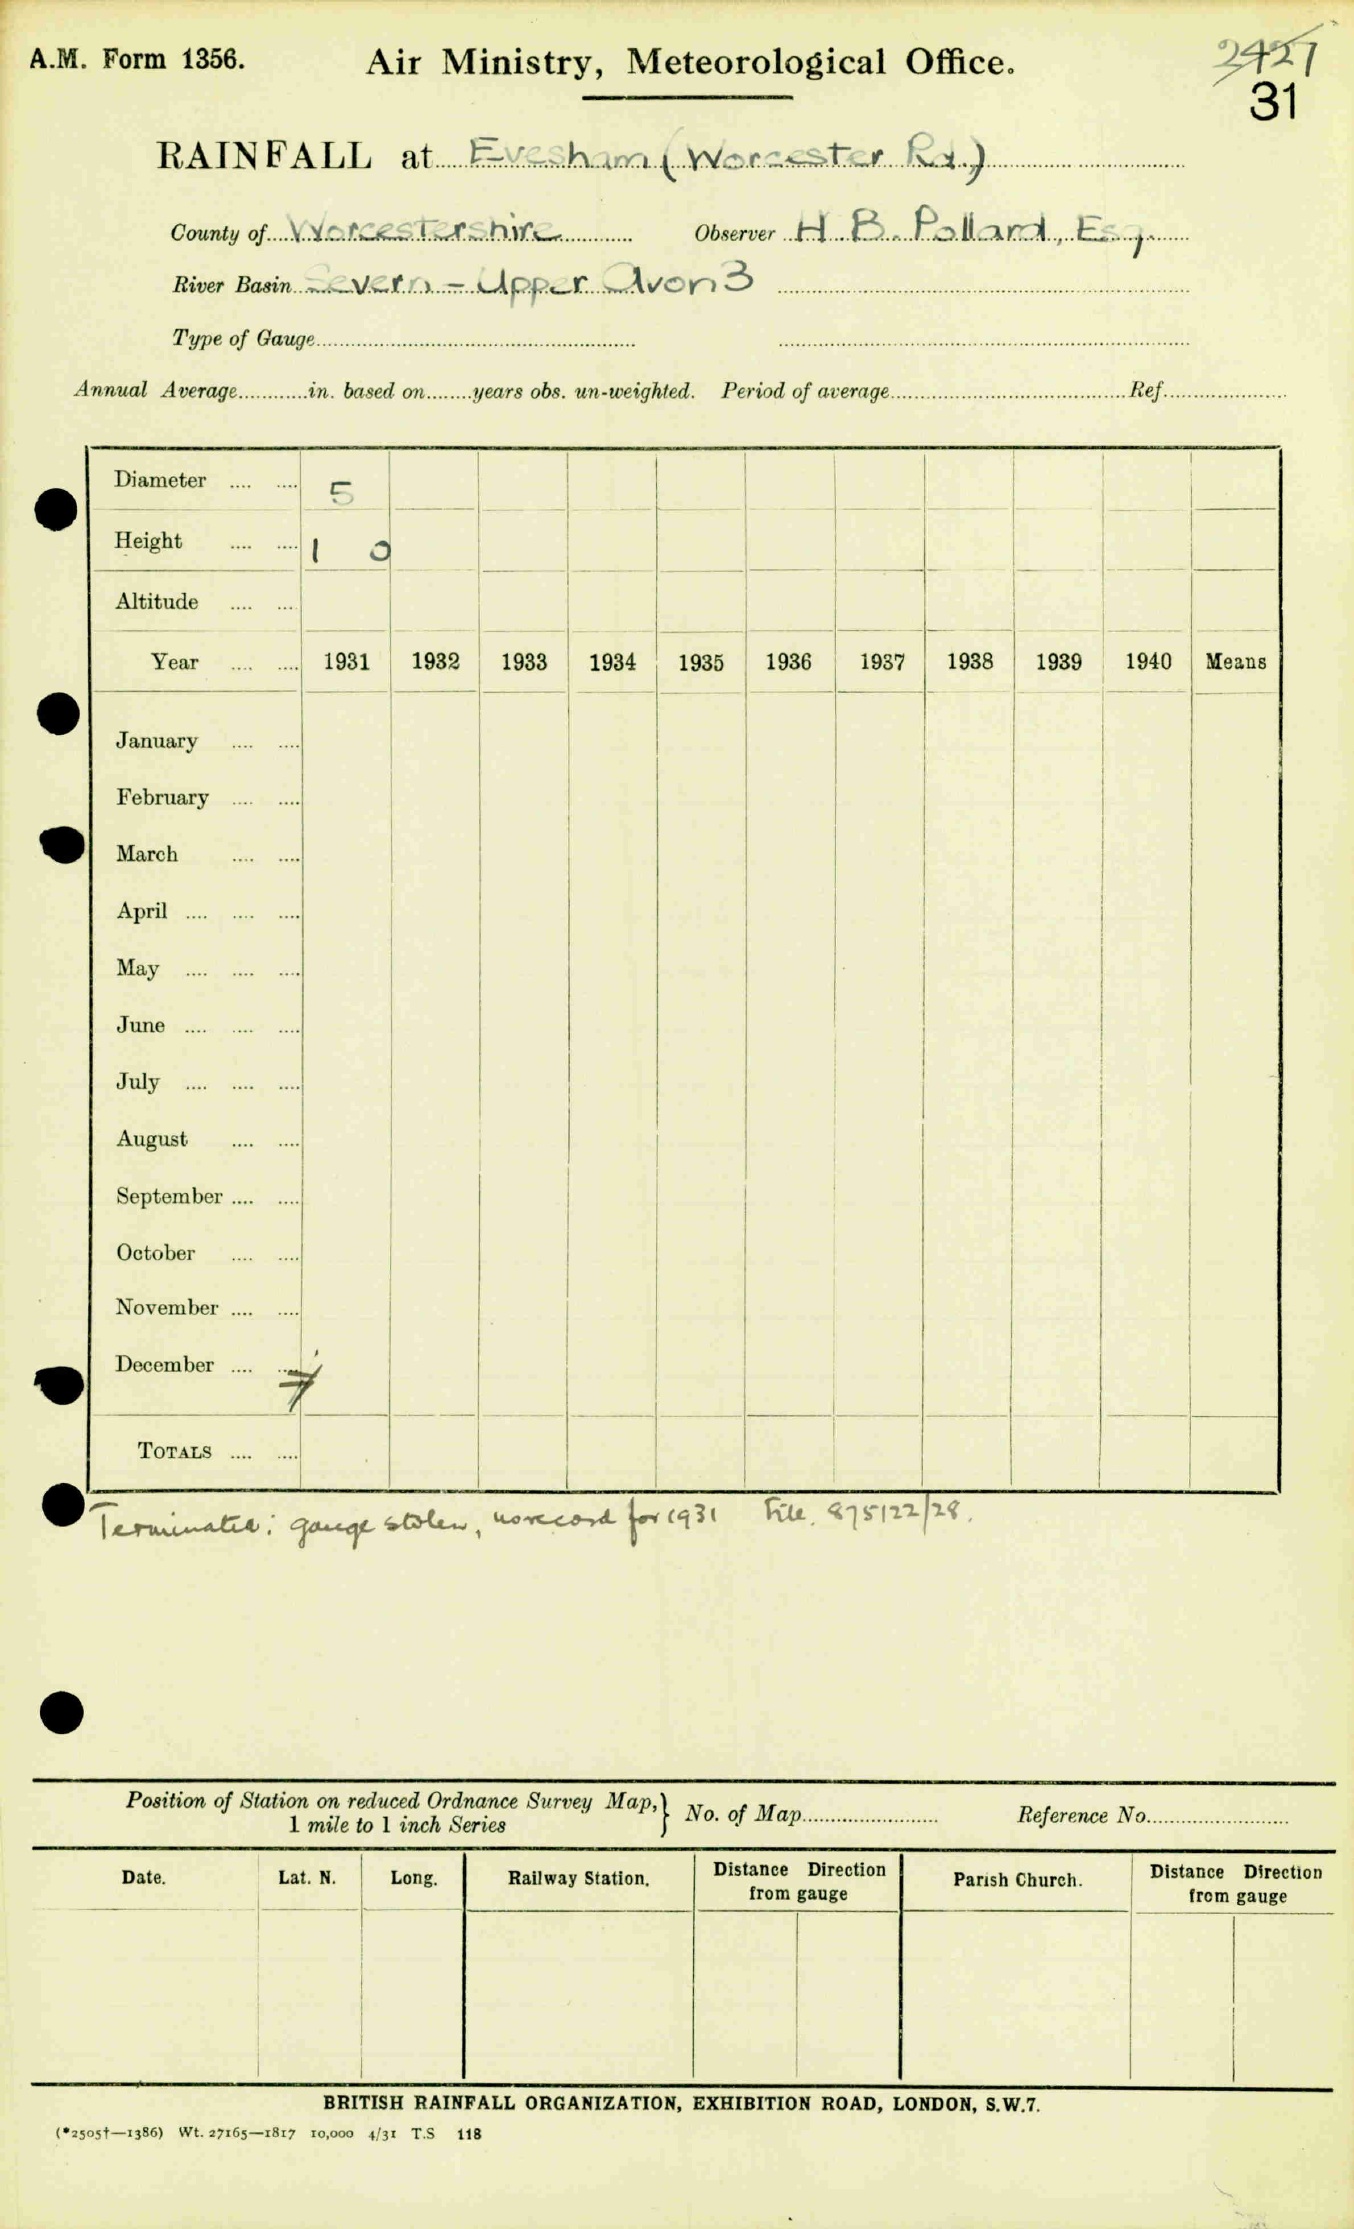 A.M. Form 1356.
Air Ministry, Meteorological Office.
2427
31
RAINFALL at Evesham (Worcester Rd.)
County of Worcestershire Observer H. B. Pollard, Esq.
River Basin Severn - Upper Avon 3
Type of Gauge
Annual Average in. based on years obs. un-weighted. Period of average Ref.
Diameter 5
Height 1 0
Altitude
Year 1931 1932 1933 1934 1935 1936 1937 1938 1939 1940 Means
January
February
March
April
May
June
July
August
September
October
November
December
TOTALS
Terminated; gauge stolen, no record for 1931 File. 875122/28.
Position of Station on reduced Ordnance Survey Map, } No. of Map Reference No.
1 mile to 1 inch Series
Date. Lat. N. Long. Railway Station. Distance Direction from gauge Parish Church. Distance Direction from gauge
BRITISH RAINFALL ORGANIZATION, EXHIBITION ROAD, LONDON, S.W.7.
(*2505†—1386) Wt. 27165—1817 10,000 4/31 T.S 118